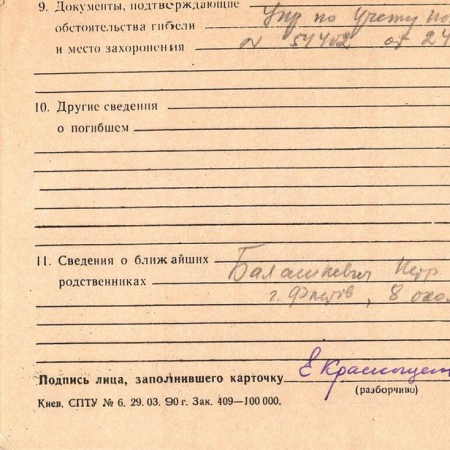 9. Документы, подтверждающие Упр по учету по
обстоятельства гибели
и место захоронения № 54402 от 24
10. Другие сведения
о погибшем
11. Сведения о ближайших Балашкевич Петр
родственниках г. , 8
Подпись лица, заполнившего карточку Е
(разборчиво)
Киев. СПТУ № 6. 29. 03. 90 г. Зак. 409—100 000.